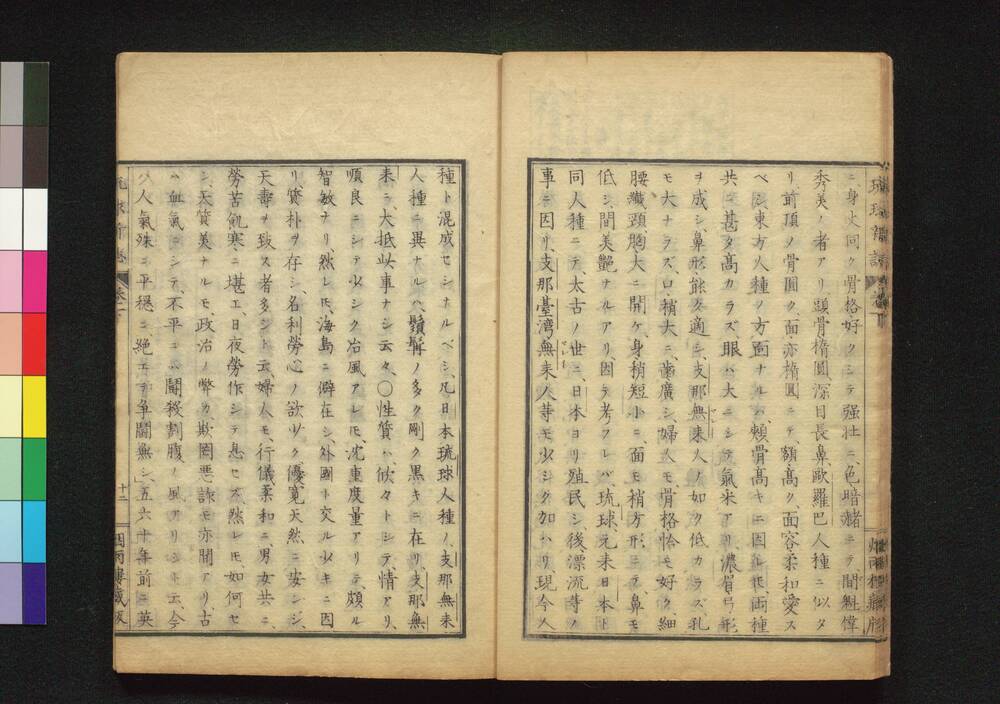 ニ身丈同ク骨格好クシテ强壮ニ、色暗赭ニテ、間魁偉
秀美ノ者アリ顋骨橢圓深目長鼻、歐羅巴人種ニ似タ
リ、前頂ノ骨圓ク、面亦橢圓ニテ、額髙ク、面容柔和愛ス
ベシ、東方人種ノ方面ナルハ、頰骨髙キニ因ルモ、両種
共ニ甚タ髙カラズ、眼ハ大ニシテ氣采アリ、濃眉弓形
ヲ成シ、鼻形能ク適シ、支那無来人ノ如ク低カラズ、乳
モ大ナラズ、口稍大ニ、齒廣シ、婦人モ骨格恰モ好ク、細
腰、纖頸、胸大ニ開ケ、身稍短小ニ、面モ稍方形ニテ、鼻モ
低シ、間美艶ナルアリ、因テ考フレバ、琉球元来日本ト
同人種ニテ、太古ノ世ニ、日本ヨリ殖民シ、後漂流寺ノ
事ニ因リ、支那臺湾無来人等モ少シク加ハリ、現今人
種ト混成セシナルベシ、凡日本琉球人種ノ、支那無来
人種ニ異ナルハ、鬚髯ノ多ク剛ク黒キニ在リ、支那無
来ニハ大抵此事ナシ云々、〇性質ハ、欣々トシテ、情アリ、
順良ニシテ少シク冶風アレモ、沈重度量アリテ、頗ル
智敏ナリ、然レモ、海島ニ僻在シ、外國ト交ル少キニ因
リ、質朴ヲ存シ、名利勞心ノ欲少ク、優寛天然ニ安シジ、
天壽ヲ致ス者多シト云、婦人モ、行儀柔和ニ、男女共ニ、
勞苦飢寒ニ堪エ、日夜勞作シテ息セズ、然レモ、如何セ
シ、天質美ナルモ、政治ノ弊カ、欺罔悪諫モ亦間アリ、古
ハ血氣ニシテ、不平ニハ鬪殺割腹ノ風アリシト云、今
ハ人氣殊ニ平穏ニ、絶エテ争鬪無シ、五六十年前ニ英
十二